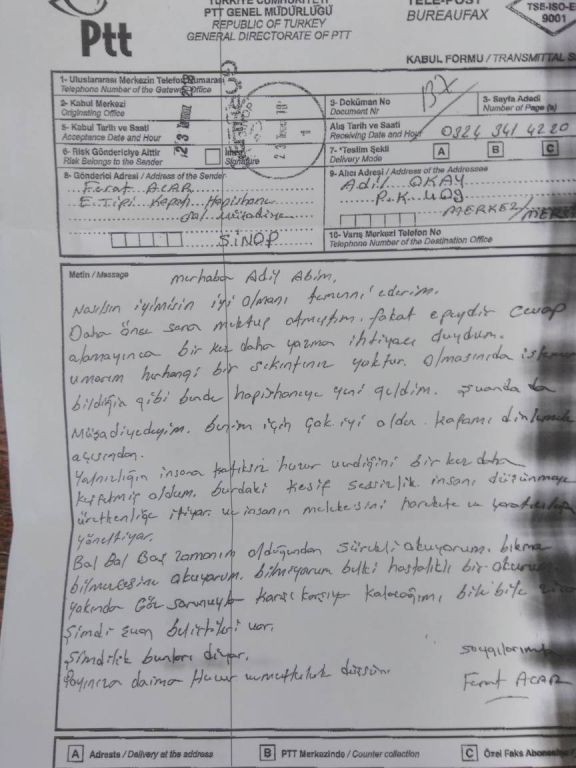 TÜRKİYE CUMHURİYETİ
PTT GENEL MÜDÜRLÜĞÜ
REPUBLIC OF TURKEY
GENERAL DIRECTORATE OF PTT
Ptt
TELE-POST
BUREAUFAX
TSE-ISO-E
9001
KABUL FORMU / TRANSMITTAL S
1- Uluslararası Merkezin Telefon Numarası
Telephone Number of the Gateway Office
2- Kabul Merkezi
Originating Office
3- Doküman No
Document Nr
3- Sayfa Adedi
Number of Page (s)
5- Kabul Tarih ve Saati
Acceptance Date and Hour
Alış Tarih ve Saati
Receiving Date and Hour
0324 341 4220
6- Risk Göndericiye Aittir
Risk Belongs to the Sender
Signature
7- *Teslim Şekli
Delivery Mode
A
B
C
8- Gönderici Adresi / Address of the Sender
Ferat ACAR
E. Tipi Kapalı Hapishane
SİNOP
9- Alıcı Adresi / Address of the Addressee
Adil OKAY
P.K. 409
MERKEZ/MERS
10- Varış Merkezi Telefon No
Telephone Number of the Destination Office
Metin / Message
merhaba Adil Abim,
Nasılsın iyimisin iyi olmanı temenni ederim.
Daha önce sana mektup atmıştım. fakat epeydir cevap
alamayınca bir kez daha yazma ihtiyacı duydum.
umarım herhangi bir sıkıntınız yoktur. Olmasınıda
bildiğin gibi bende hapishaneye yeni geldim. şuanda da
Müşadiyedeyim. benim için çok iyi oldu. kafamı dinlemek
açısından.
Yalnızlığın insana katıksız huzur verdiğini bir kez daha
keşfetmiş oldum. burdaki kesif sessizlik insanı düşünmeye
üretkenliğe itiyor. ve insanın melekesini harekete ve
yöneltiyor.
Bol Bol Boş zamanım olduğundan sürekli okuyorum. bıkma
bilmecesine okuyorum. bilmiyorum belki hastalıklı bir okurum.
yakında Göz sorunuyla karşı karşıya kalacağımı bile bile
Şimdi Şuan belirtileri var.
Şimdilik bunları diyor.
Payınıza daima Huzur ve mutluluk düşsün.
saygılarımla
Ferat ACAR
A
Adreste / Delivery at the address
B
PTT Merkezinde / Counter collection
C
Özel Faks